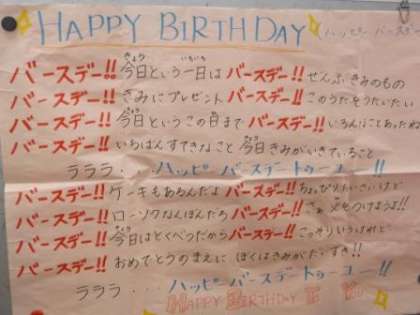 HAPPY BIRTHDAY (ハッピー バースデー
バースデー!! 今日という一日は バースデー!! ぜんぶきみのもの
バースデー!! きみにプレゼント バースデー!! このうたをうたいたい
バースデー!! 今日というこの日まで バースデー!! いろんなことあったね
バースデー!! いちばんすてきなこと 今日きみがいきていること
ラララ・・・ハッピーバースデートゥーユー!!
バースデー!! ケーキもあるんだよ バースデー!! ちょっぴりちいさいけど
バースデー!! ローソクなんぼんたの バースデー!! さぁ 火をつけようよ!!
バースデー!! 今日はとくべつだから バースデー!! こっそりいうけれど
バースデー!! おめでとうのまえに ぼくはきみがだいすき!!
ラララ・・・ハッピーバースデートゥーユー!!
HAPPY BIRTHDAY